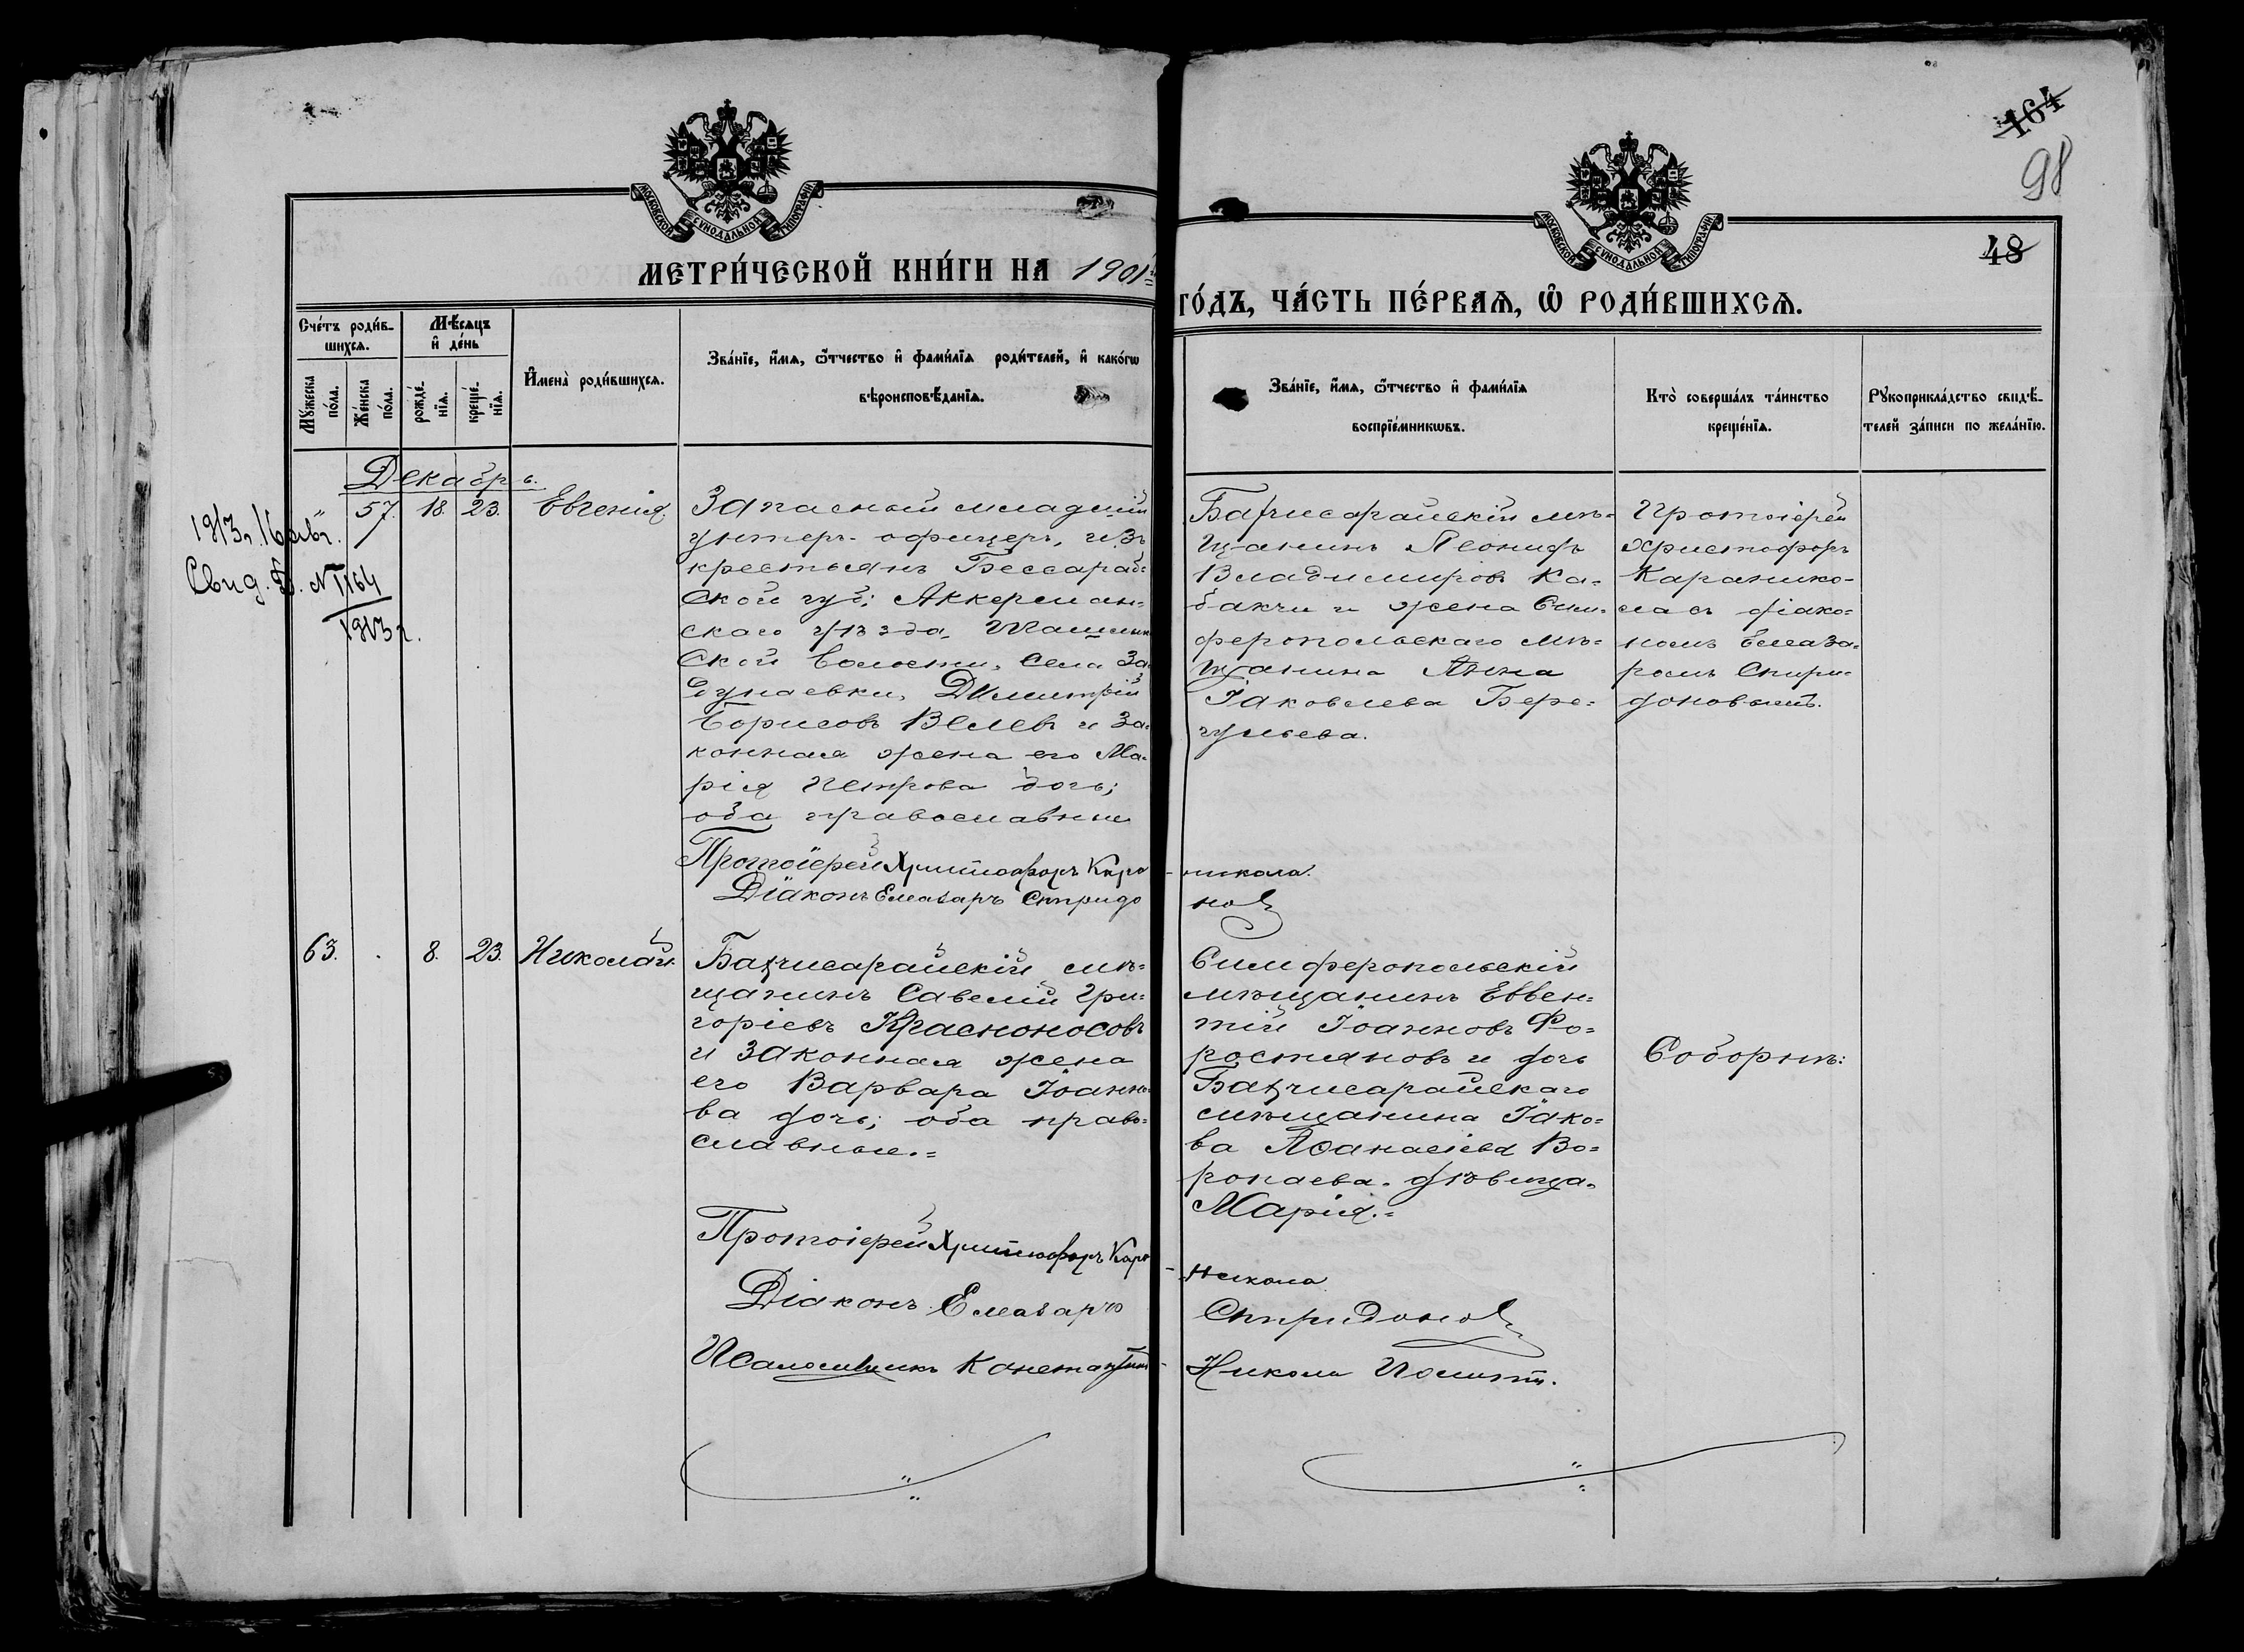 164
98
48
МОСКОВСКОЙ СѴНОДАЛЬНОЙ ТИПОГРАФІИ
МОСКОВСКОЙ СѴНОДАЛЬНОЙ ТИПОГРАФІИ
МЕТРИ́ЧЕСКОЙ КНИ́ГИ НА 1901
ГО́ДЪ, ЧА́СТЬ ПЕ́РВАѦ, Ѿ РОДИ́ВШИХСѦ.
Сче́тъ роди́в-
шихсѧ.
Мѣ́сѧцъ
и҆ де́нь
Мꙋ́жеска
по́ла.
Же́нска
по́ла.
рожде́-
нїѧ.
креще́-
нїѧ.
И҆мена̀ роди́вшихсѧ.
Зва́нїе, и҆́мѧ, ѻ҆́тчество и҆ фами́лїѧ роди́телей, и҆ како́гѡ
вѣроисповѣ́данїѧ.
Зва́нїе, и҆́мѧ, ѻ҆́тчество и҆ фами́лїѧ
воспрїе́мникѡвъ.
Кто̀ соверша́лъ та́инство
креще́нїѧ.
Рꙋкоприкла́дство свидѣ́-
телей за́писи по жела́нїю.
Декабрь.
57. 18. 23. Евгенія
1913 г. 16
Свид. № 1164
1913 г.
Запасный младшій
унтеръ-офицеръ, изъ
крестьянъ Бессараб-
ской губ; Аккерман-
скаго уѣзда,
ской волости, села За-
дунаевки, Димитрій
Борисовъ Велевъ и за-
конная жена его Ма-
рія Петрова дочь;
оба православные
Бахчисарайскій мѣ-
щанинъ Леонидъ
Владимировъ Ка-
бакчи и жена Сим-
феропольскаго мѣ-
щанина Анна
Іаковлева Бере-
гульева.
Протоіерей
Христофоръ
Каранико-
ла съ діако-
номъ Елеаза-
ромъ Спири-
доновымъ.
Протоіерей Христофоръ Кара-никола.
Діаконъ Елеазаръ Спиридонов
63. . 8. 23. Николай
Бахчисарайскій мѣ-
щанинъ Савелій Гри-
горіевъ Красноносовъ
и законная жена
его Варвара Іоанно-
ва дочь; оба право-
славные.=
Симферопольскій
мѣщанинъ Еввен-
тій Іоанновъ Фо-
ростяновъ и дочь
Бахчисарайскаго
мѣщанина Іако-
ва Аѳанасіева Во-
ропаева. дѣвица.
Марія.=
Соборнѣ:
Протоіерей Христофоръ Кара-никола
Діаконъ Елеазаръ Спиридонов
Псаломщикъ Константинъ Никола